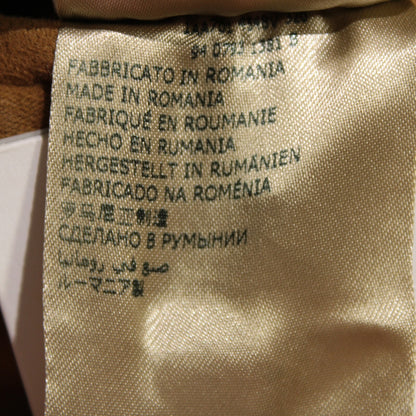 FABBRICATO IN ROMANIA
MADE IN ROMANIA
FABRIQUÉ EN ROUMANIE
HECHO EN RUMANIA
HERGESTELLT IN RUMÄNIEN
FABRICADO NA ROMÉNIA
罗马尼亚制造
СДЕЛАНО В РУМЫНИИ
صنع في رومانيا
ルーマニア製